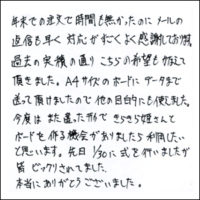 年末での注文で時間も無かったのに メールの
返信も早く 対応がすごくよく感謝しております。
過去の実績の通り こちらの希望も叶えて
頂きました。A4サイズのボードにデータまで
送って頂けましたので 他の目的にも使えました。
今度は また違ったサイトで きらきら姫さんで
ボードを作る機会がありましたら 利用したい
と思います。先日 1/30に 式を行いましたが
皆 ビックリされてました。
本当にありがとうございました。